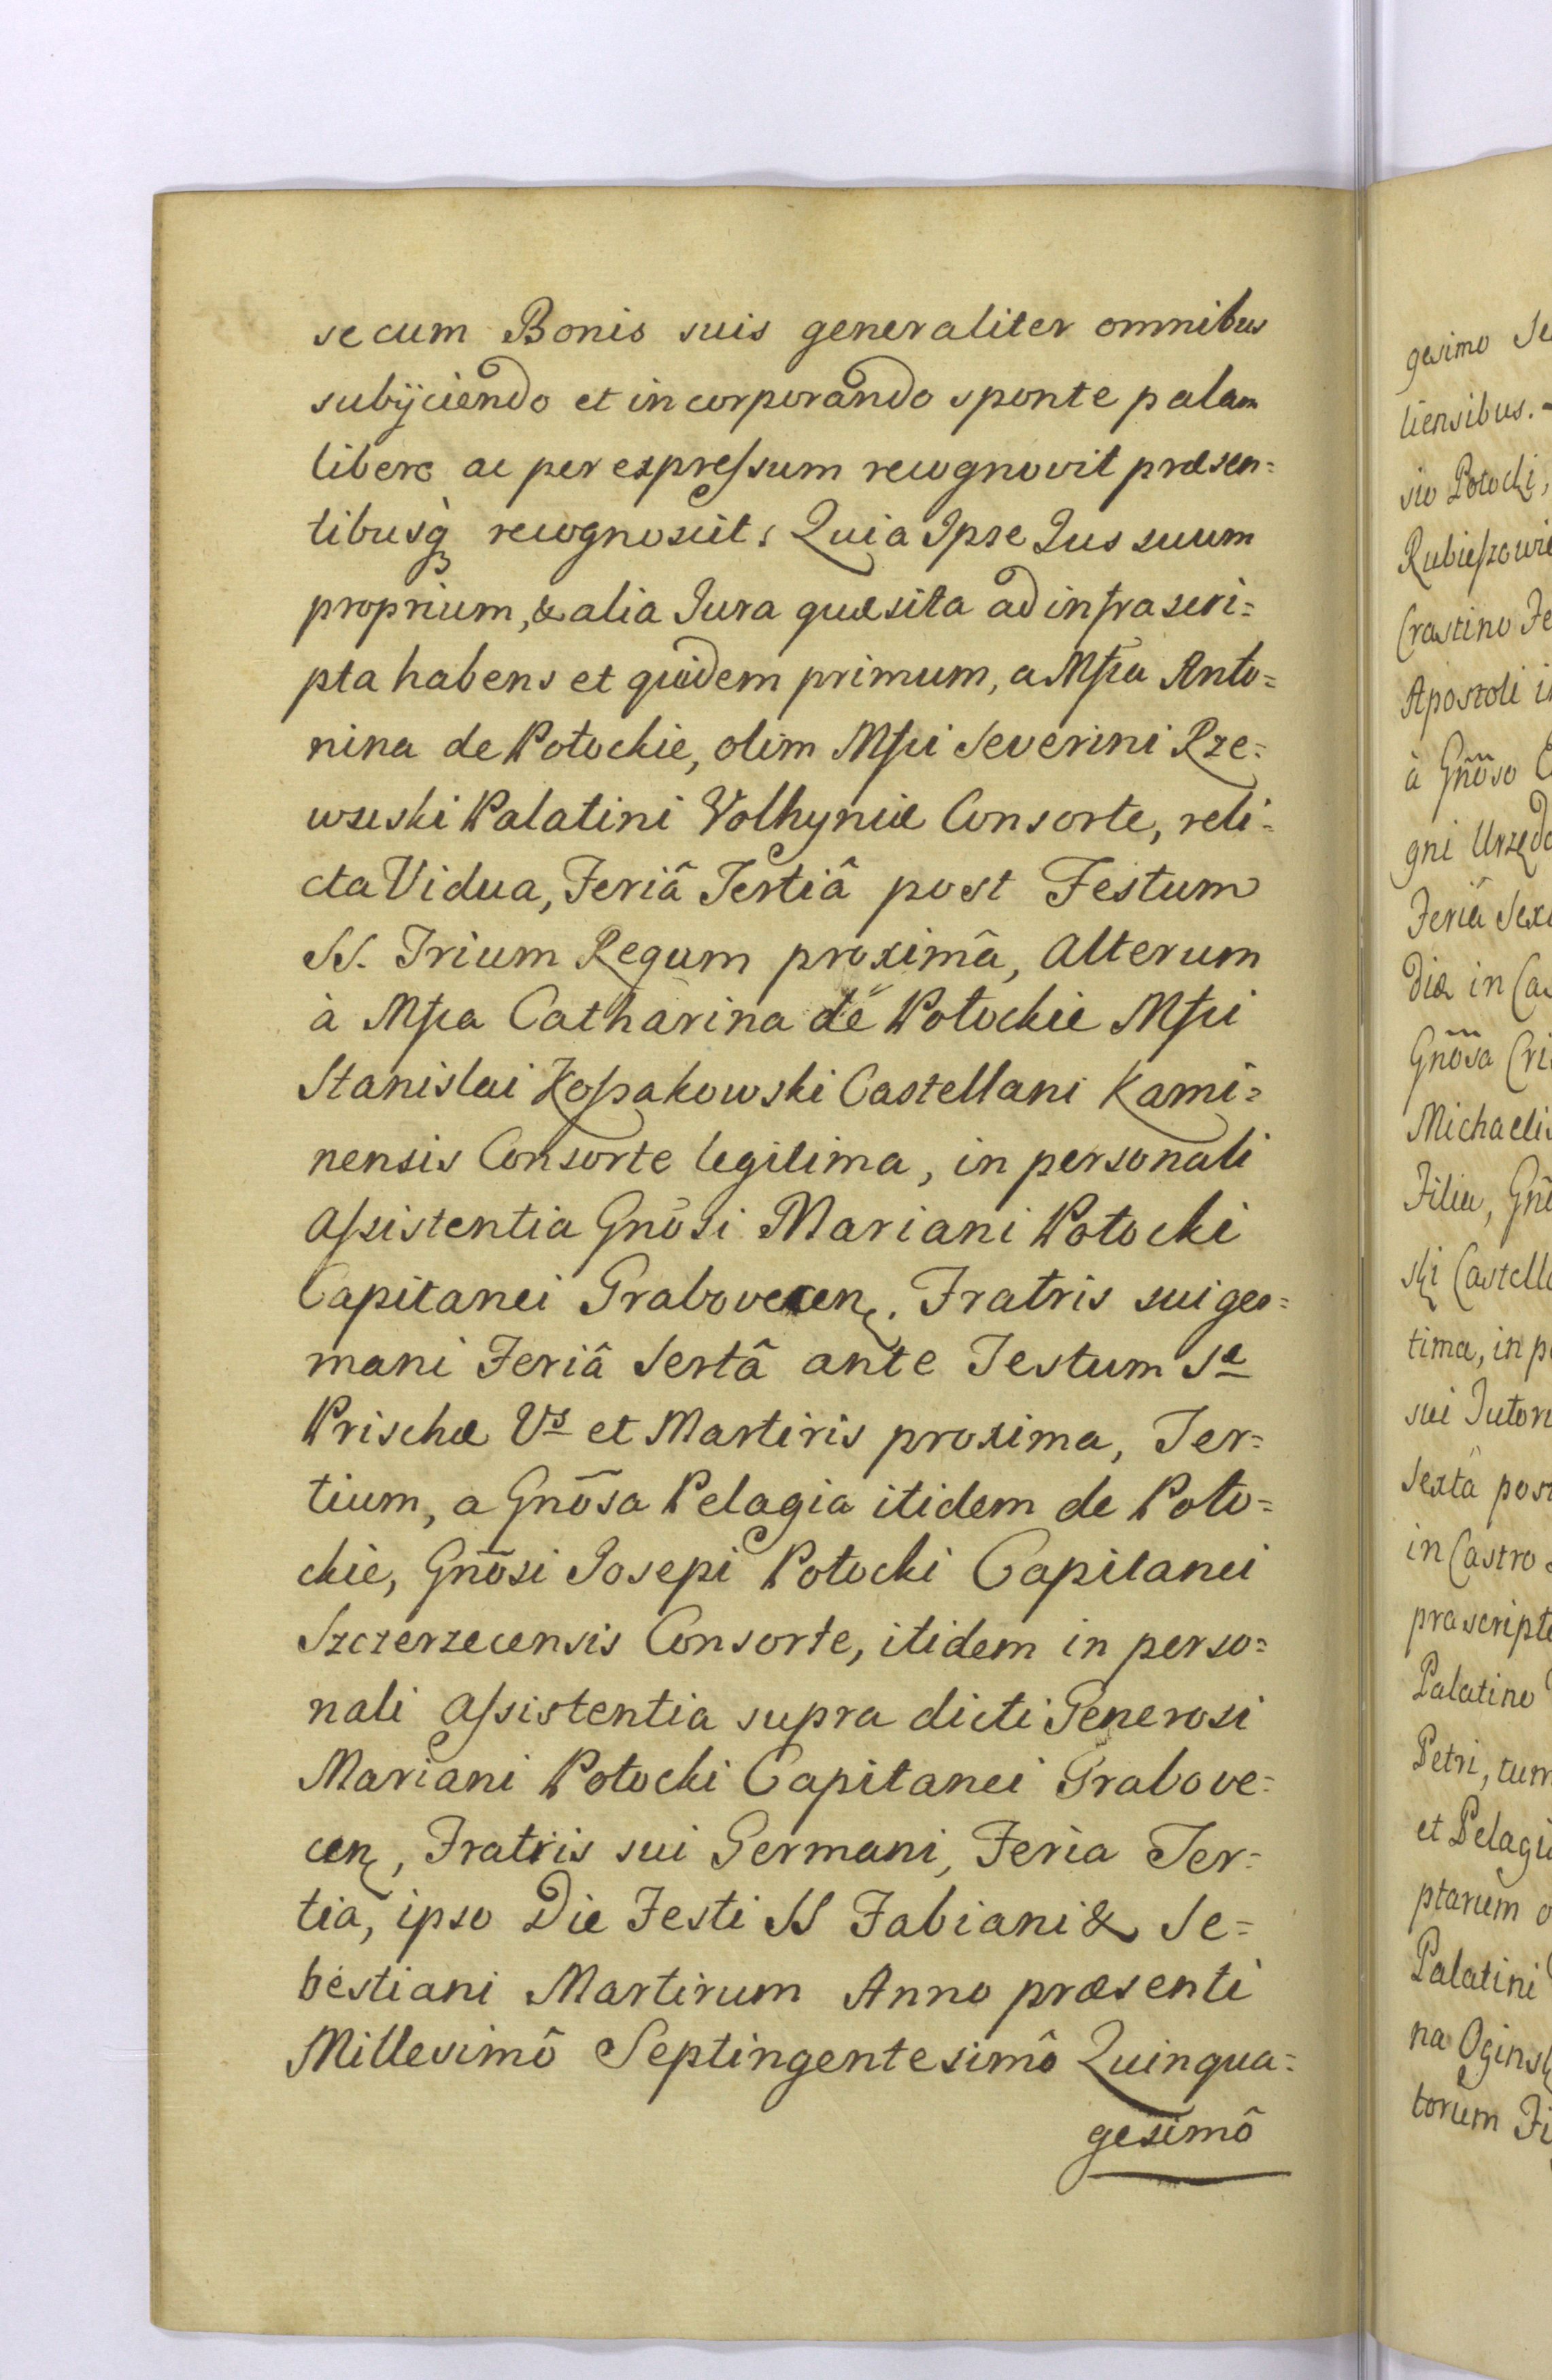 se cum Bonis suis generaliter omnibus
subÿciendo et in corporando sponte palam
libere ac per expressum recognovit præsen=
tibusq recognoscit: Quia Ipse Jus suum
proprium, & alia Jura quæsita ad infra scri=
pta habens et quidem primum, a Mfca Anto=
nina de Potockie, olim Mfci Severini Rze=
wuski Palatini Volhyniæ Consorte, reli=
cta Vidua, Feriâ Tertiâ post Festum
SS. Trium Regum proximâ, Alterum
à Mfca Catharina de Potockie Mfci
Stanislai Kossakowski Castellani Kami=
nensis Consorte legitima, in personali
Assistentia Gnosi Mariani Potocki
Capitanei Grabovecen. Fratris sui ger=
mani Feriâ Sextâ ante Festum Sæ
Prischæ Vs et Martiris proxima, Ter=
tium, a Gnõsa Pelagia itidem de Poto=
ckie, Gnõsi Josepi Potocki Capitanei
Szczerzecensis Consorte, itidem in perso=
nali Assistentia supra dicti Generosi
Mariani Potocki Capitanei Grabove=
cen, Fratris sui Germani, Feria Ter=
tia, ipso Die Festi SS Fabiani & Se=
bestiani Martirum Anno præsenti
Millesimô Septingentesimô Quinqua=
gesimô
gesimo
liensibus.
sio Potocki,
Crastino
Apostoli
à Gnõso
gni
Feriâ
diæ in
Gnõsa
Michaelis
Filia,
ski
tima, in
sui
Sextâ post
in Castro
Palatino
Petri, tum
et
ptarum
Palatini
na
torum